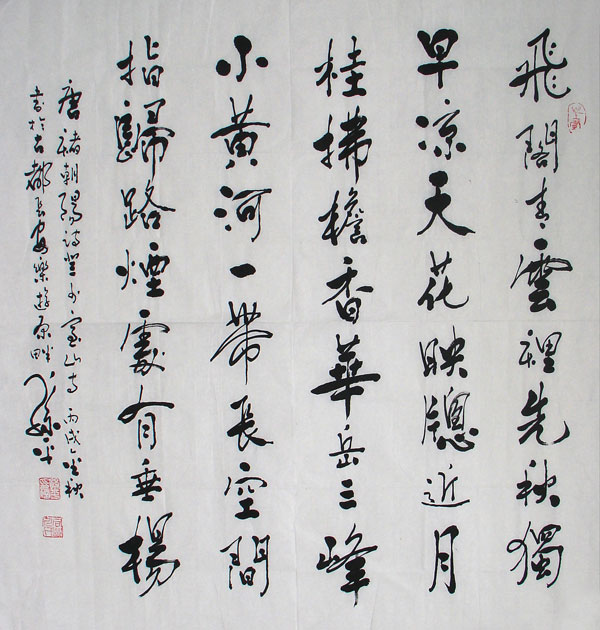 飛閣青雲裡先秋獨
早凉天花映牕近月
桂拂檐香華岳三峰
小黄河一帶長空間
指歸路煙處有垂楊
唐褚朝陽詩登少室山寺 丙戌金秋
書於古都長安樂遊原畔